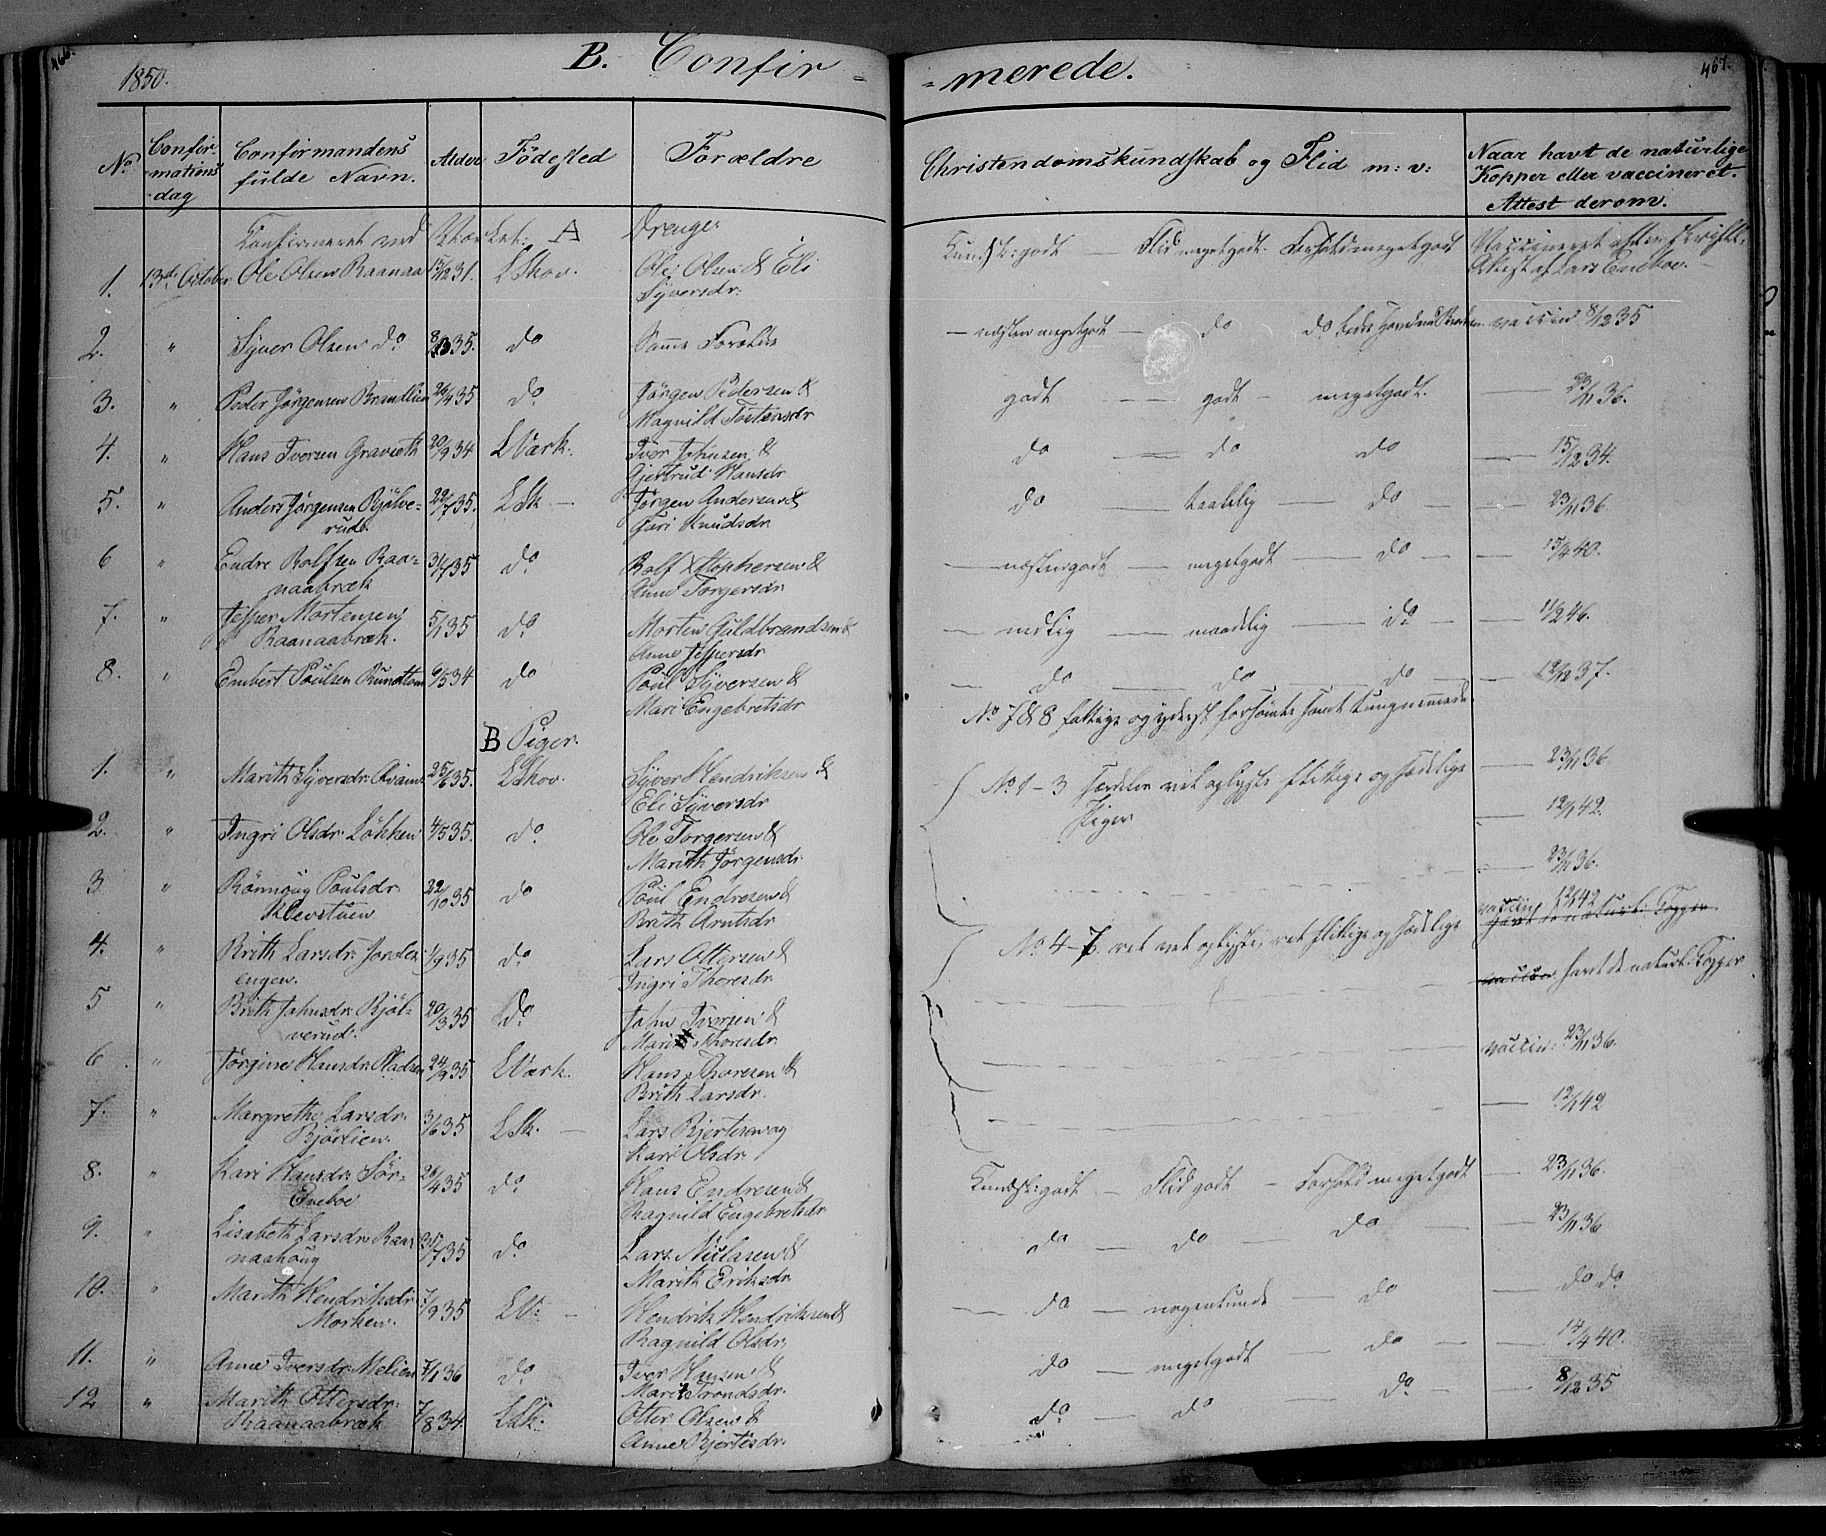 466.
1850.
B. Confir-
-merede.
467.
No
Confir-
-mations
-dag
Confirmandens
fulde Navn.
Alder
Födested
Forældre
Christendomskundskab og Flid m: v:
Naar havt de naturlige
Kopper eller vaccineret.
Attest derom.
Confirmeret ved Værket: A Drenge.
1. 13de October Ole Olsen Raanaa 15/12 31. LSkov. Ole Olsen & Eli
Syversdr.
Kundsk: godt — Flid megetgodt. Forhold megetgodt Vaccineret efter skriftl.
Attest af Lars Eneboe.
2. " Syver Olsen do 35. do Samme Forældre
— næsten megetgodt — do do vaccin 8/12 35
3. " Peder Jörgensen Brændlien 26/4 35 do Jörgen Pedersen &
Magnild Tostensdr
godt — godt — megetgodt. — 23/11 36.
4. " Hans Iversen Gravseth 20/9 34 LVærk. Iver Johnsen &
Gjertrud Hansdr
do — do do — 15/12 34.
5. " Anders Jörgensen Bjölve-
rud. 22/7 35. LSk — Jörgen Andersen &
Guri Knudsdr.
do — taalelig — do — 23/11 36
6 " Endre Rolfsen Raa-
naabræk 31/7 35 do Rolf Xstophersen &
Anne Torgersdr
— næstengodt — megetgodt — do — 15/4 40.
7. " Jesper Mortensen
Raanaabræk. 5/1 35 do Morten Guldbrandsen &
Anne Jespersdr
— nödtig — maadelig — do — 11/2 46.
8. " Embert Poulsen Rundtom 6/5 34 do Poul Syversen &
Mari Engebretsdr
— do — do — do — 12/12 37.
No 7 & 8 fattige og yderst forsömte samt tungnemmede
B Piger.
1. " Marith Syversdr. Kvam 25/6 35. LSkov. Syver Hendriksen &
Eli Syversdr
No 1-3 særdeles vel oplyste flittige og sædelige
Piger
— 23/11 36
2. " Ingri Olsdr. Lökken 4/5 35. do Ole Torgersen &
Marith Jörgensdr.
— 12/1 42.
3 " Rönnoug Poulsdr.
Klevstuen 22/10 35 do Poul Endresen &
Brith Arntsdr
— 23/11 36.
4. " Brith Larsdr. Jordes
engen. 1/9 35 do Lars Ottersen &
Ingri Thoresdr.
No 4-7. ret vel oplyste, ret flittige og sædelige
vaccin 12/1 42
havt de naturl: Kopper.
5 " Brith Johnsdr. Bjöl-
verud. 20/3 35 do John Iversen &
Marit Thoresdr.
vaccin havt de naturl: Kopper
6 " Jörgine Hansdr. Pladsen 24/9 35 LVærk. Hans Thoresen &
Brith Larsdr.
vaccin: 23/11 36.
7. " Margrethe Larsdr.
Björlien. 3/6 35 LSk. — Lars Bjertesen og
Kari Olsdr
— 12/1 42
8. " Kari Hansdr. Sör-
Eneboe 26/4 35 do Hans Endresen &
Ragnild Engebretsdr
Kundsk: godt — Flid godt — Forhold megetgodt — 23/11 36.
9. " Lisabeth Larsdr. Raa-
naahoug 31/7 35 do Lars Nielssen &
Marith Eriksdr.
do — do — do — 23/11 36
10. " Marith Hendriksdr.
Morken. 7/9 35 LV: — Hendrik Hendriksen &
Ragnild Olsdr.
— do — nogenlunde — do — do do
11. " Anne Iversdr. Melien 7/1 36 do Iver Hansen &
Marit Trondsdr.
do — megetgodt — do — 14/4 40.
12 " Marith Ottersdr.
Raanaabræk 7/8 34 LSk. Otter Olsen &
Anne Bjertesdr.
do — do — do — 8/12 35